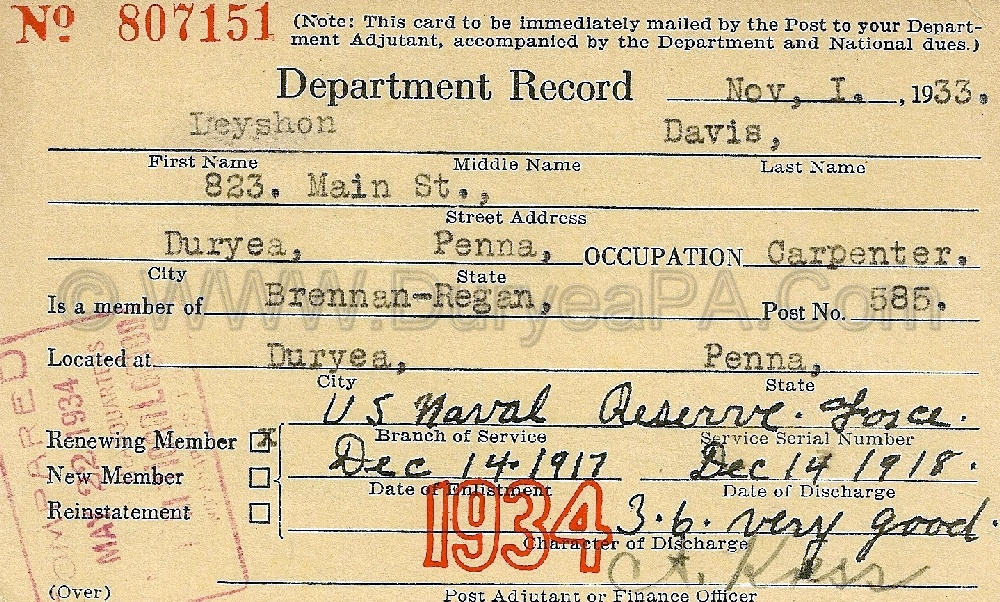 No 807151
(Note: This card to be immediately mailed by the Post to your Depart-
ment Adjutant, accompanied by the Department and National dues.)
Department Record Nov, I. , 1933.
Leyshon Davis,
First Name Middle Name Last Name
823. Main St.,
Street Address
Duryea, Penna, OCCUPATION Carpenter.
City State
© WWW.DuryeaPA.Com
Is a member of Brennan-Regan, Post No. 585.
Located at Duryea, Penna,
City State
US Naval Reserve. Force.
Renewing Member X Branch of Service Service Serial Number
Dec 14. 1917 Dec 14 1918.
New Member Date of Enlistment Date of Discharge
Reinstatement 1934 3.6. very good.
Character of Discharge
COMPARED
MAY 22 1934
(Over) Post Adjutant or Finance Officer